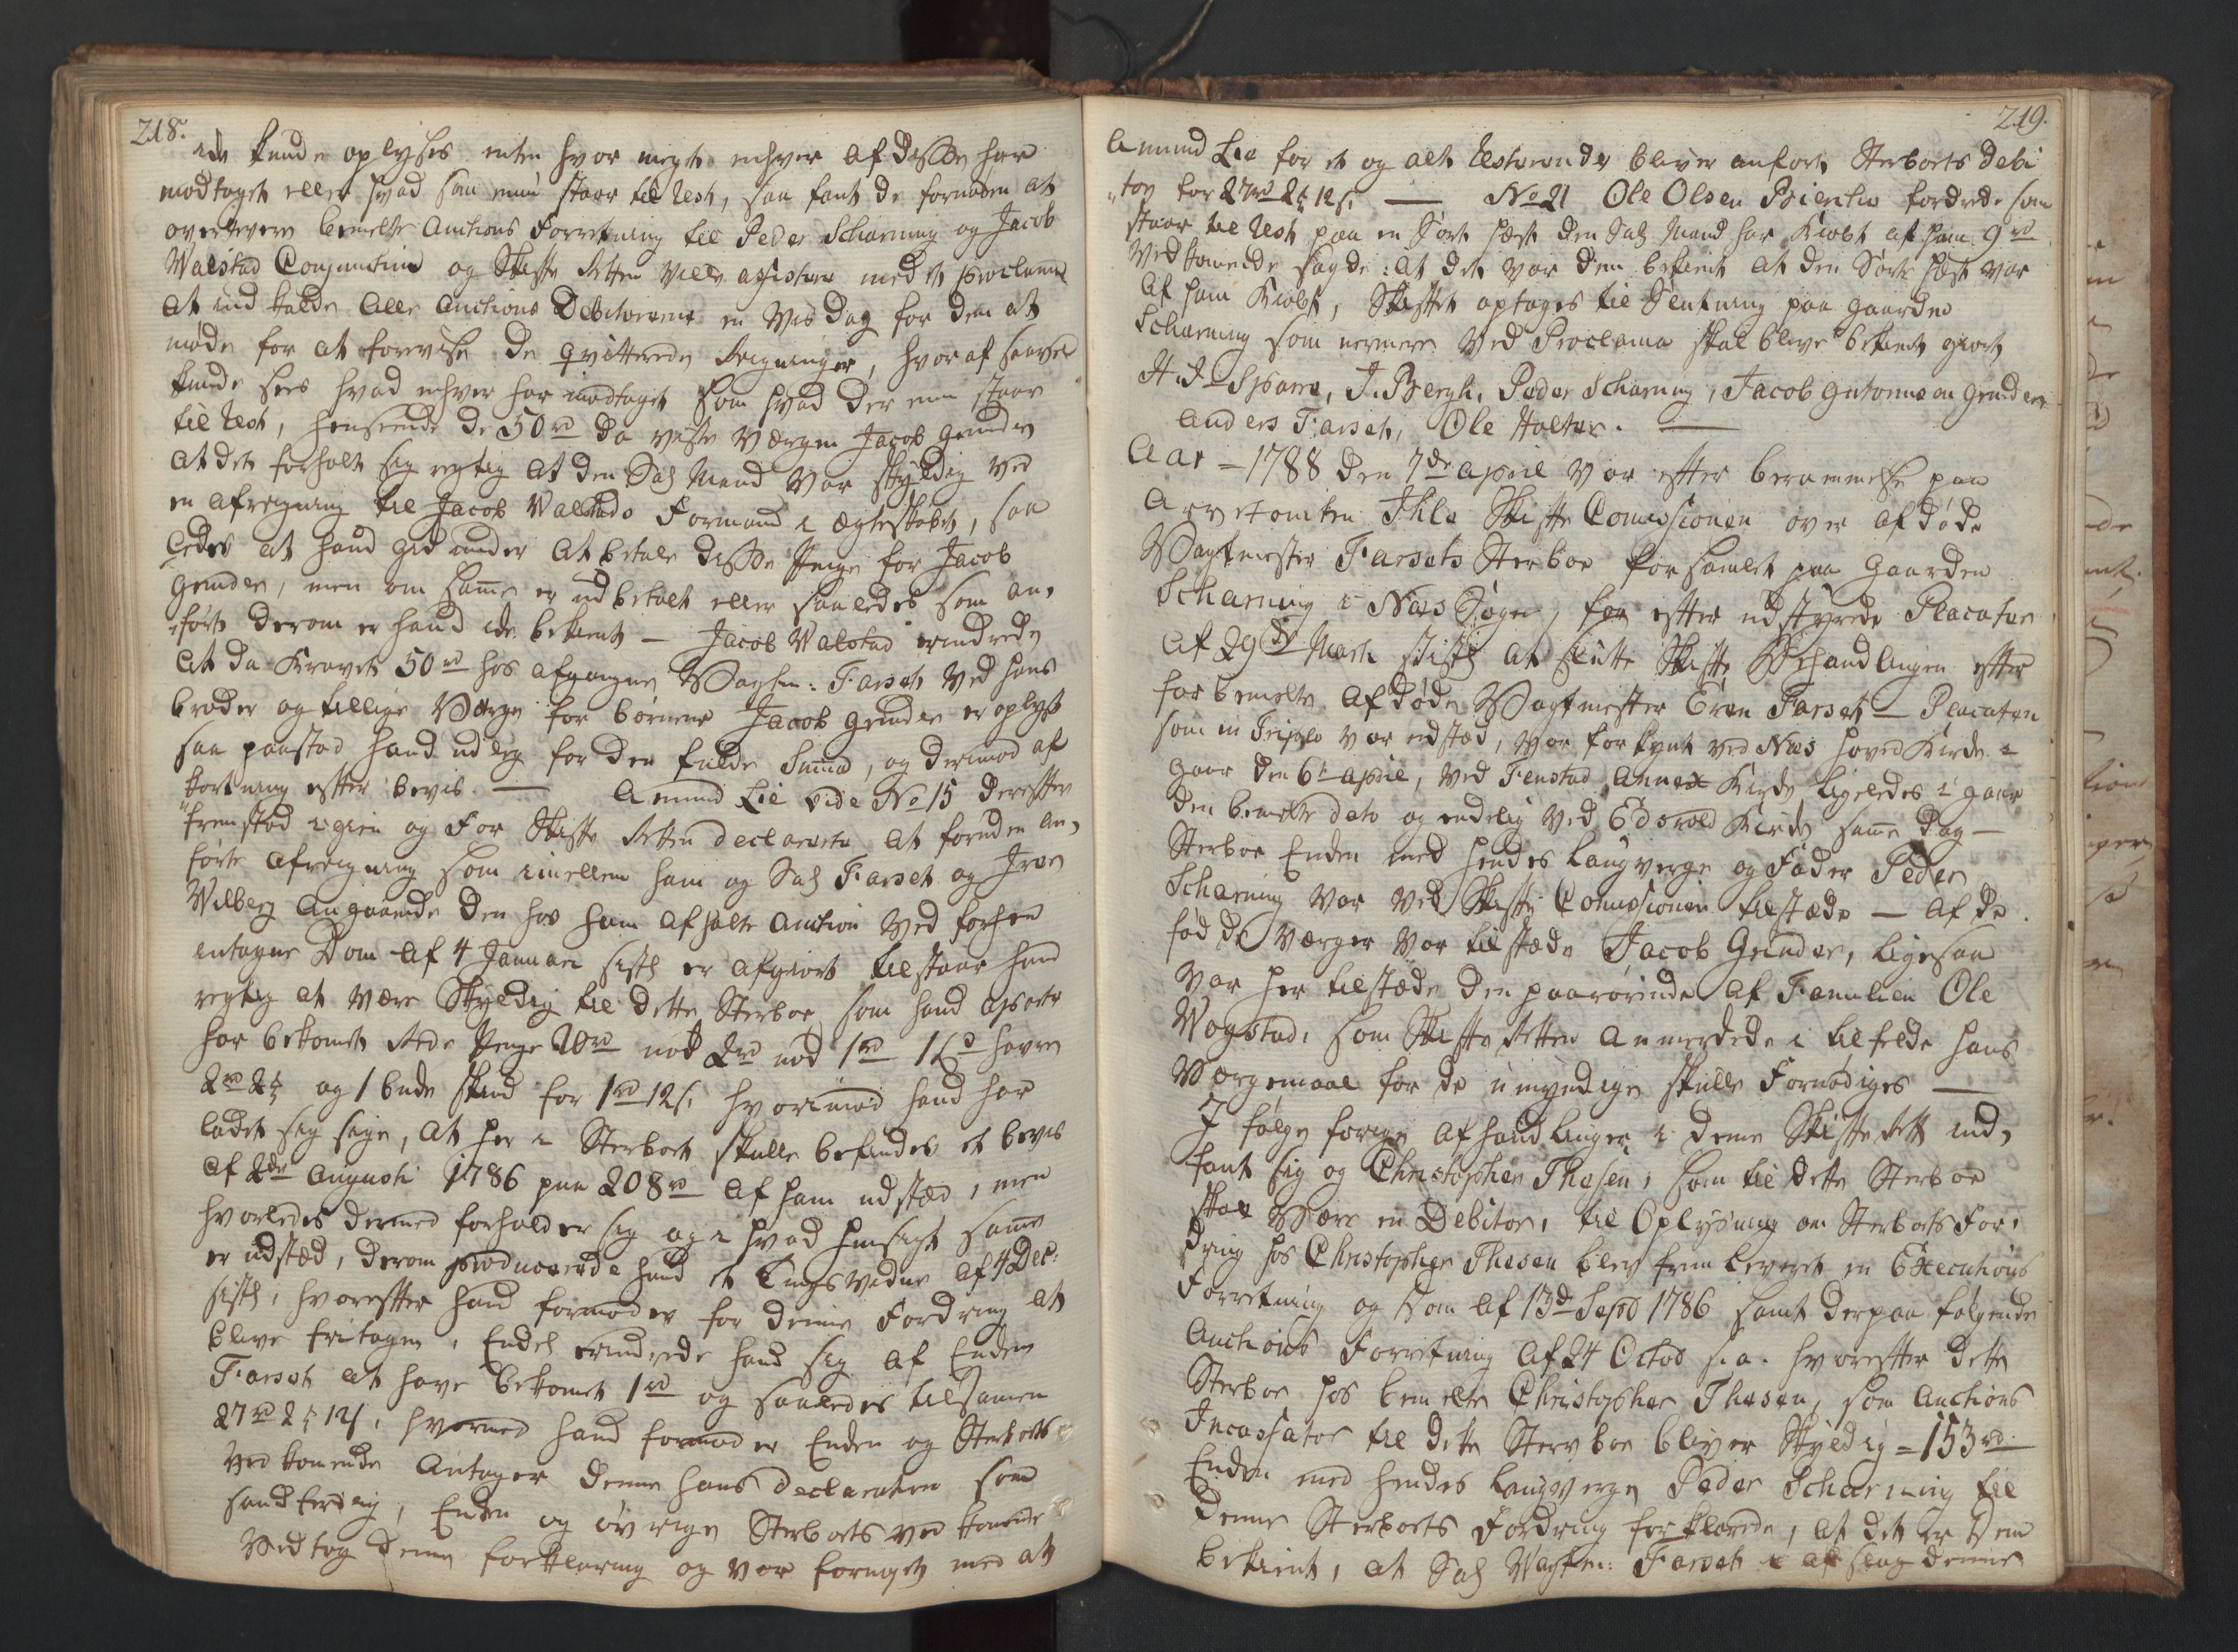 218.
ide kunde oplyses enten hvor meget enhver af disse har
modtaget eller hvad som enu staar til Rest, saa fant de fornøden at
overlevere bemelte Auctions Forretning til Peder Scharning og Jacob
Walstad Conjunctim og Skifte Retten ville assistere med et proclama
at indkalde alle Auctions Debitorerne en vis dag for dem at
møde for at forevise de qvitterede Regninger, hvoraf saavel
kunde sees hvad enhver har modtaget som hvad der enu staar
til Rest, henseende de 50 rd da viste værgen Jacob Grinder
at det forholt sig rigtig at den Sal Mand var skyldig ved
en afregning til Jacob Walstads Formand i Ægteskabet, saa
ledes at hand at betale disse Penge for Jacob
Grinder, men om same er udbetalt eller saaledes som an-
ført derom er hand ide bekient — Jacob Walstad erindrede
at da Kravet 50 rd hos afgangne Wagtm: Farset ved hans
broder og tillige Værge for børnene Jacob Grinder er oplyst
saa paastod hand udlæg for den fulde Suma, og derimod af
kortning efter bevis. — Amund Lie vide No 15 derefter
fremstod igien og For Skifte Retten declarerte at foruden an-
førte afregning som imellem ham og Sal Farset og Iver
Wilberg angaaende den hos ham afholte Auction ved forhen
intagne Dom af 4 Januari sistl er afgiort tilstaar hand
regtig at være skyldig til dette Sterboe som hand aparte
har bekomet Rede Penge 20 rd nok 2 rd nok 1 rd 1 havre
2 rd 2 og 1 bude skind for 1 rd 12 s. hvorimod hand har
ladet sig sige, at her i Sterboet skulle befindes et bevis
af 2de Augusti 1786 paa 208 rd af ham udstæd, men
hvorledes dermed forholder sig og i hvad hensigt same
er udstæd, derom producerede hand et tingsvidne af 4 Dec:
sistl, hvorefter hand formoder for denne Fordring at
blive fritagen, Endel erindrede hand sig af Enken
Farset at have bekomet 1 rd og saaledes tilsamen
27 rd 2 12 s, hvormed hand formoder Enken og Sterboets
vedkomende antager denne hans declaration som
sandfærdig, Enken og øvrige Sterboets vedkomende
vedtog denne forklaring og var fornøyet med at
219.
Amund Lie for et og alt Resterende bliver anført Sterboets debi
"tor for 27 rd 2 12 s. — No 21 Ole Olsen fordrede som
staar til Rest paa en Sort hæst den Sal Mand har kiøbt af ham 9 rd
Vedkomende sagde: at det var dem bekient at den Sorte hæst var
af ham kiøbt, Skiftet optages til Slutning paa gaarden
Scharning som nermere ved Proclama skal blive bekient giort
Sparre, J. Bergh, Peder Scharning, Jacob Grinder
Anders Farset, Ole Holter. —
Aar = 1788 den 7de April var efter berammelse paa
Skifte Comissionen over afdøde
Wagtmester Farsets Sterboe forsamlet paa gaarden
Scharning i Næs Sogn, for efter udstyrede Placater
af 29de Marti sistl at slutte Skifte Behandlingen efter
forbemelte afdøde Wagtmester Even Farset — Placaten
som in Triplo var udstæd, var forkynt ved Næs hoved Kirke i
gaar den 6te April, ved Fenstad Annex Kirke ligeledes i gaar
den bemelte dato og endelig ved Edsvold Kirke same dag —
Sterboe Enken med hendes laugverge og Fader Peder
Scharning var ved Skifte Comissionen tilstæde — af de
fødde værger var tilstæde Jacob Grinder, ligesaa
var her tilstæde den paarørende af Familien Ole
Wogstad, som Skifte Retten anmerdede i tilfelde hans
Værgemaal for de umyndige skulle Fornødiges —
I følge forrige afhandlinger i denne Skifte Rett ind-
fant sig og Christopher Thesen, som til dette Sterboe
skal være en Debitor, til Oplysning om Sterboets For-
dring hos Christopher Thesen blev fremleveret en Executions
Forretning og Dom af 13de Sept 1786 samt derpaa følgende
Auctions Forretning af 24 Octob s. a. hvorefter dette
Sterboe hos bemelte Christopher Thesen, som Auctions
Incassator til dette Stervboe bliver skyldig = 153 rd
Enken med hendes laugverge Peder Scharning til
denne Sterboets Fordring forklarede, at det er dem
bekient, at Sal Wagtm: Farset i afslag denne